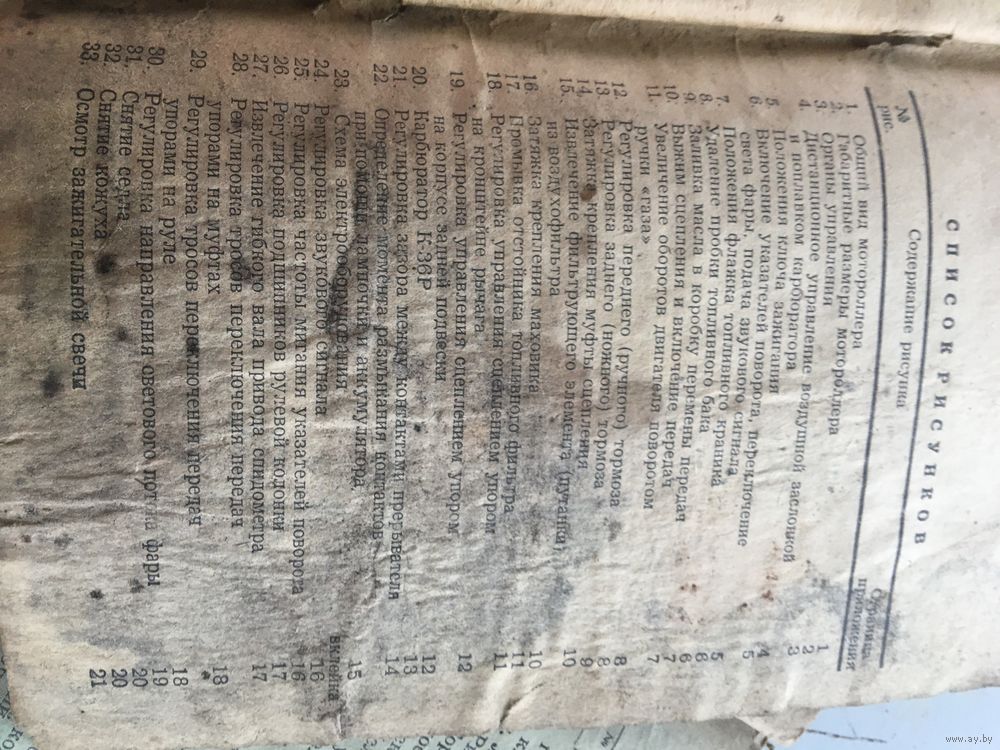 СПИСОК РИСУНКОВ
№ рис.
Содержание рисунка
Страница приложения
1. Общий вид мотороллера 1
2. Габаритные размеры мотороллера 2
3. Органы управления 3
4. Дистанционное управление воздушной заслонкой
и поплавком карбюратора 4
5. Положения ключа зажигания
6. Включение указателей поворота, переключение
света фары, подача звукового сигнала 5
7. Положения флажка топливного краника 5
8. Удаление пробки топливного бака 6
9. Заливка масла в коробку перемены передач 6
10. Выжим сцепления и включение передач 7
11. Увеличение оборотов двигателя поворотом
ручки «газа» 7
12. Регулировка переднего (ручного) тормоза 8
13. Регулировка заднего (ножного) тормоза 8
14. Затяжка крепления муфты сцепления 9
15. Извлечение фильтрующего элемента (путанки)
из воздухофильтра 10
16. Затяжка крепления маховика 10
17. Промывка отстойника топливного фильтра 11
18. Регулировка управления сцеплением упором
на кронштейне рычага 11
19. Регулировка управления сцеплением упором
на корпусе задней подвески 12
20. Карбюратор К36Р 12
21. Регулировка зазора между контактами прерывателя 13
22. Определение момента размыкания контактов 14
при помощи лампочки и аккумулятора 15
23. Схема электрооборудования вклейка
24. Регулировка звукового сигнала 16
25. Регулировка частоты мигания указателей поворота 16
26. Регулировка подшипников рулевой колонки 17
27. Извлечение гибкого вала привода спидометра 17
28. Регулировка тросов переключения передач
упорами на муфтах 18
29. Регулировка тросов переключения передач
упорами на руле 18
30. Регулировка направления светового потока фары 19
31. Снятие седла 20
32. Снятие кожуха 20
33. Осмотр зажигательной свечи 21
www.ay.by